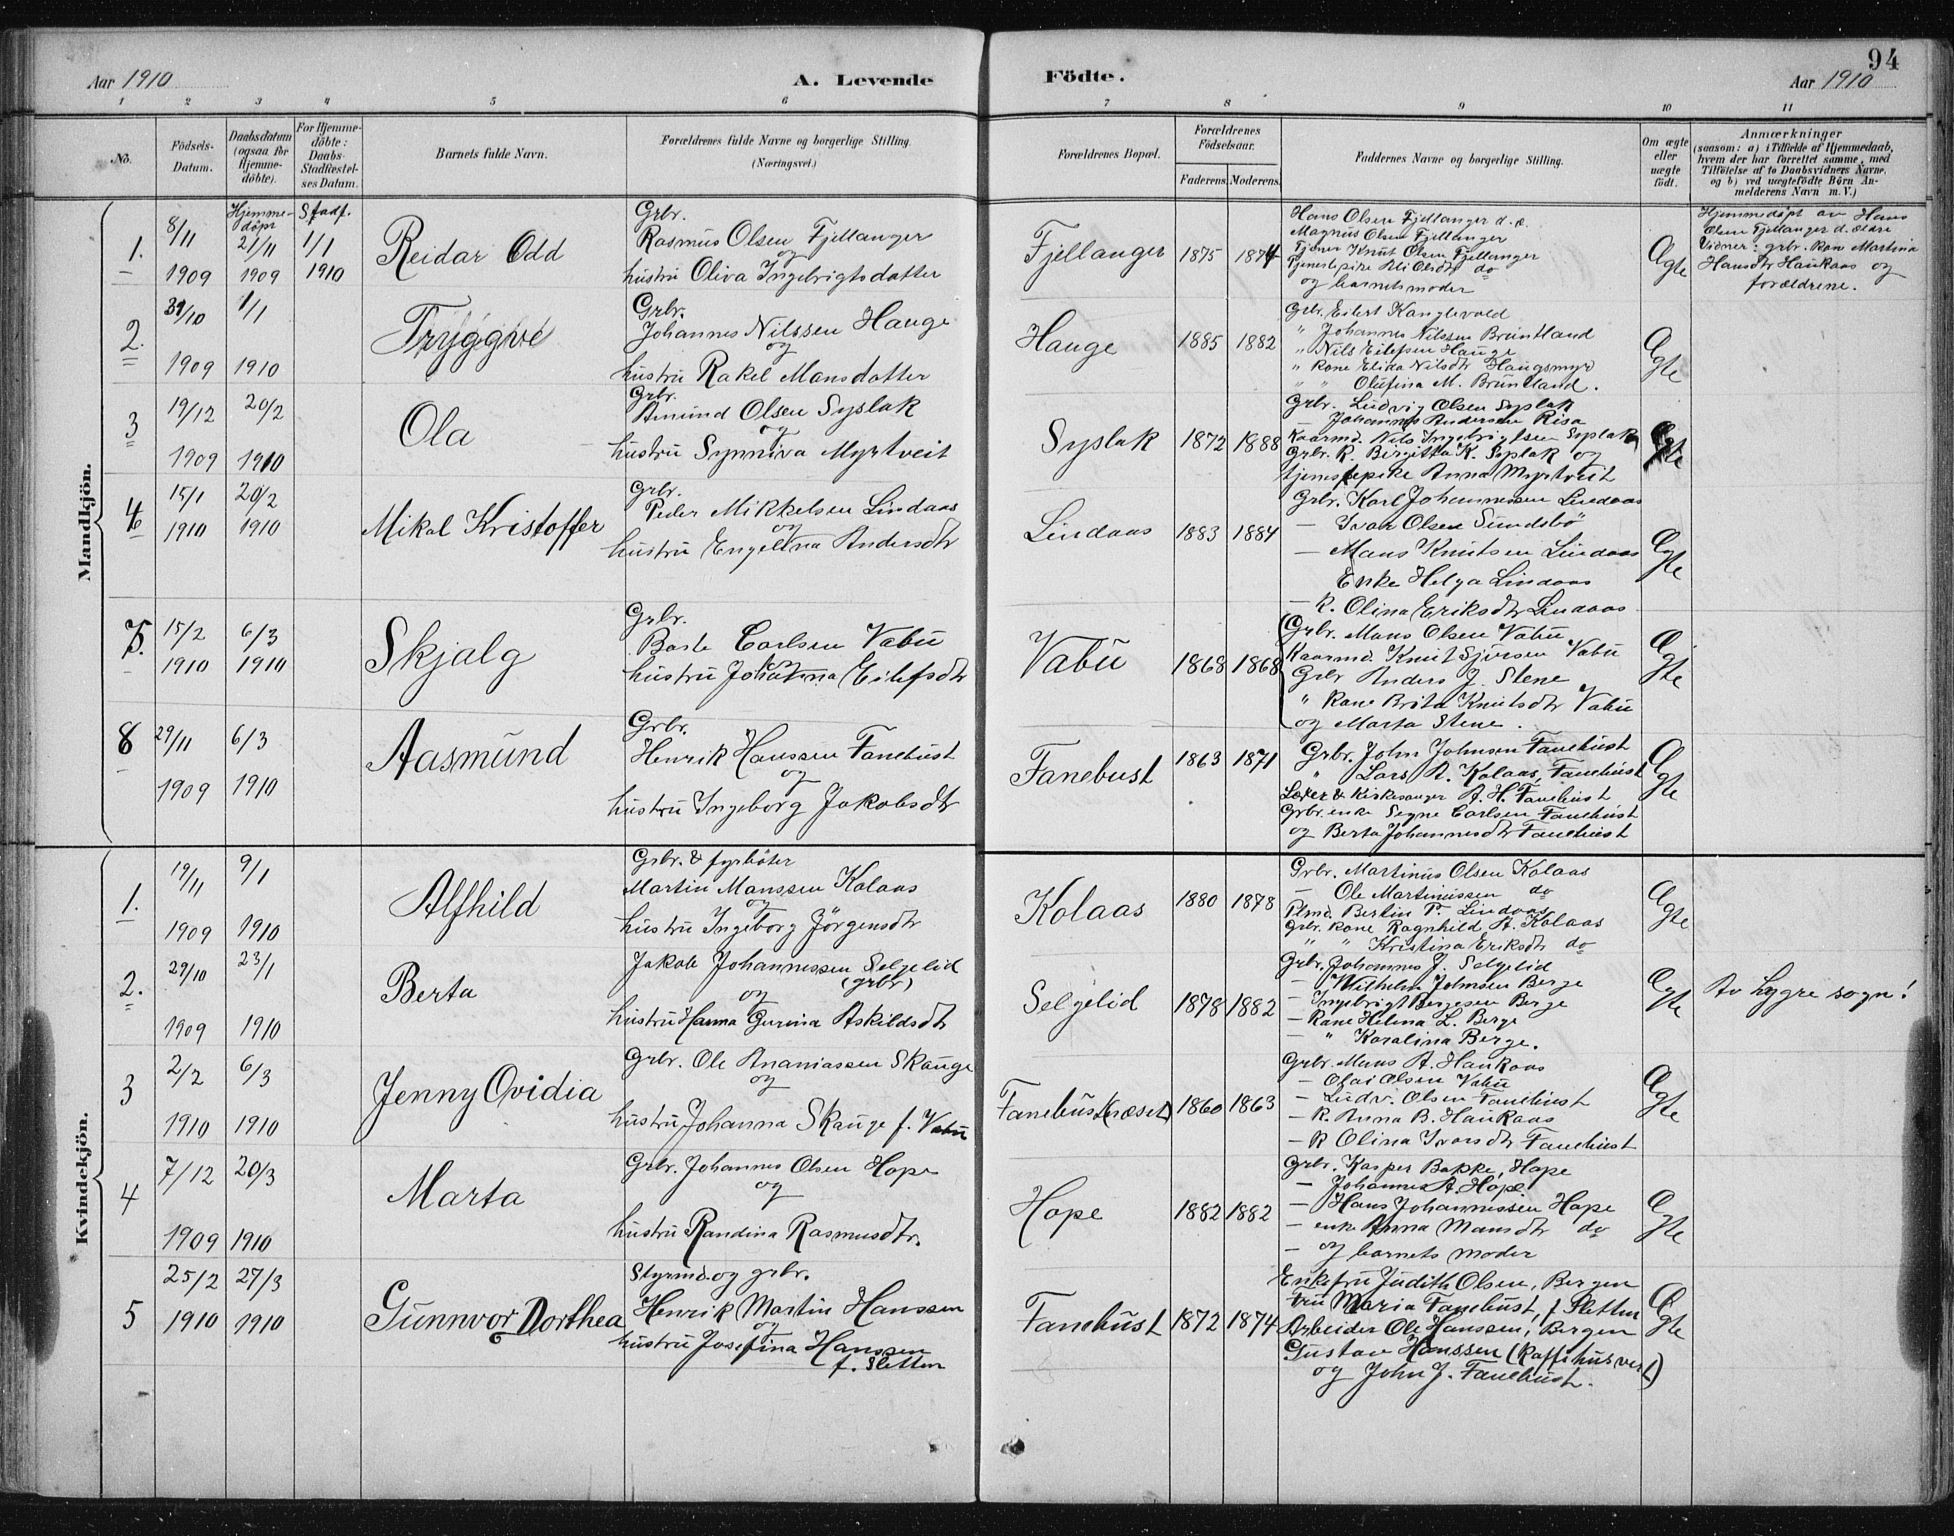 94
Aar 1910
A. Levende
Födte.
Aar 1910
1 2 3 4 5 6 7 8 9 10 11
No.
Födsels-Datum.
Daabsdatum (ogsaa for Hjemme-döbte).
For Hjemme-döbte: Daabs-Stadfæstel-ses Datum.
Barnets fulde Navn.
Forældrenes fulde Navne og borgerlige Stilling. (Næringsvei.)
Forældrenes Bopæl.
Forældrenes Födselsaar.
Faderens. Moderens.
Faddernes Navne og borgerlige Stilling.
Om ægte eller uægte födt.
Anmærkninger (saasom: a) i Tilfælde af Hjemmedaab, hvem der har forrettet samme, med Tilföielse af to Daabsvidners Navne, og b) ved uægtefödte Börn An-melderens Navn m. V.)
Mandkjön.
1. 8/11 1909
Hjemme-döpt 21/11 1909
Stadf. 1/1 1910
Reidar Odd
Grbr.
Rasmus Olsen Fjellanger
og
hustru Oliva Ingebrigtsdatter
Fjellanger 1875 1874
Hans Olsen Fjellanger d. æ.
Magnus Olsen Fjellanger
Tjener Knut Olsen Fjellanger
Tjenestepike Ali Olsdtr do
og barnets moder
Ægte
Hjemmedöpt av Hans
Olsen Fjellanger d. ældre
Vidner: grbr. kone Martina
Hansdtr Haukaas og
forældrene.
2. 31/10 1909
1/1 1910
Tryggve
Grbr.
Johannes Nilssen Hauge
og
hustru Rakel Mansdatter
Hauge 1885 1882
Grbr. Eilert Kanglevold
" Johannes Nilssen Bruntland
" Nils Eilefsen Hauge
" Kone Elida Nilsdtr Haugsmyr
" " Olufina M. Bruntland.
Ægte
3 19/12 1909
20/2 1910
Ola
Grbr.
Amund Olsen Syslak
og
hustru Synniva Myrtveit
Syslak 1872 1888
Grbr. Ludvig Olsen Syslak
Johannes Andersen Risa
Kaarmd. Nils Ingebrigtsen Syslak
Grbr. K. Birgitta K. Syslak og
tjenestepike Anna Myrtveit
Ægte
4 15/1 1910
20/2 1910
Mikal Kristoffer
Grbr.
Peder Mikkelsen Lindaas
og
hustru Engelina Andersdtr
Lindaas 1883 1884
Grbr. Karl Johannessen Lindaas
— Ivar Olsen Sundsbö
— Mans Knutsen Lindaas
Enke Helga Lindaas
— K. Olina Eriksdtr Lindaas
Ægte
5. 15/2 1910
6/3 1910
Skjalg
Grbr.
Baste Carlsen Vabü
og
hustru Johanna Eilefsdtr
Vabü 1868 1868
Grbr. Mans Olsen Vabü
Kaarmd. Knut Sjursen Vabü
Grbr Anders J. Stene
" Kone Brita Knutsdtr Vabü
og Marta Stene.
Ægte
8 29/11 1909
6/3 1910
Aasmund
Grbr.
Henrik Hanssen Fanebust
og
hustru Ingeborg Jakobsdtr
Fanebust 1863 1871
Grbr. John Johnsen Fanebust
" Lars A. Kolaas, Fanebust
Lærer & Kirkesanger A. H. Fanebust
Grbr. enke Signe Carlsen Fanebust
og Berta Johannesdtr Fanebust
Ægte
Kvindekjön.
1. 19/11 1909
9/1 1910
Alfhild
Grbr. & fyrböter
Martin Manssen Kolaas
og
hustru Ingeborg Jörgensdtr
Kolaas 1880 1878
Grbr. Martinus Olsen Kolaas
— Ole Martinussen do
Plmd. Bertin P. Lindaas
Grbr. kone Ragnhild A. Kolaas
" " Kristina Eriksdtr do
Ægte
2. 29/10 1909
23/1 1910
Berta
Jakob Johannessen Selgelid
(grbr)
og
hustru Hanna Gurina Askildsdtr
Selgelid 1878 1882
Grbr. Johannes J. Selgelid
— Wilhelm Johnsen Berge
— Ingebrigt Bergesen Berge
— Kone Helina L. Berge
— " Karalina Berge.
Ægte
Av Lygre sogn!
3 2/2 1910
6/3 1910
Jenny Ovidia
Grbr. Ole Ananiassen Skauge
og
hustru Johanna Skauge f. Vabü
Fanebust(næset) 1860 1863
Grbr. Mans A. Haukaas
— Olai Olsen Vabü
— Ludv. Olsen Fanebust
— K. Anna B. Haukaas
— K Olina Ivarsdtr Fanebust
Ægte
4 7/12 1909
20/3 1910
Marta
Grbr. Johannes Olsen Hope
og
hustru Randina Rasmusdtr.
Hope 1882 1882
Grbr. Kasper Bakke, Hope
— Johannes A. Hope
— Hans Johannessen Hope
— enke Anna Mansdtr do
— og barnets moder
Ægte
5 25/2 1910
27/3 1910
Gunnvor Dorthea
Styrmd. og grbr.
Henrik Martin Hanssen
og
hustru Josefina Hanssen
f. Sletten
Fanebust 1872 1874
Enkefru Judith Olsen, Bergen
fru Maria Fanebust, f Sletten
Arbeider Ole Hanssen, Bergen
Gustav Hanssen (kaffihusvert)
og John J. Fanebust.
Ægte